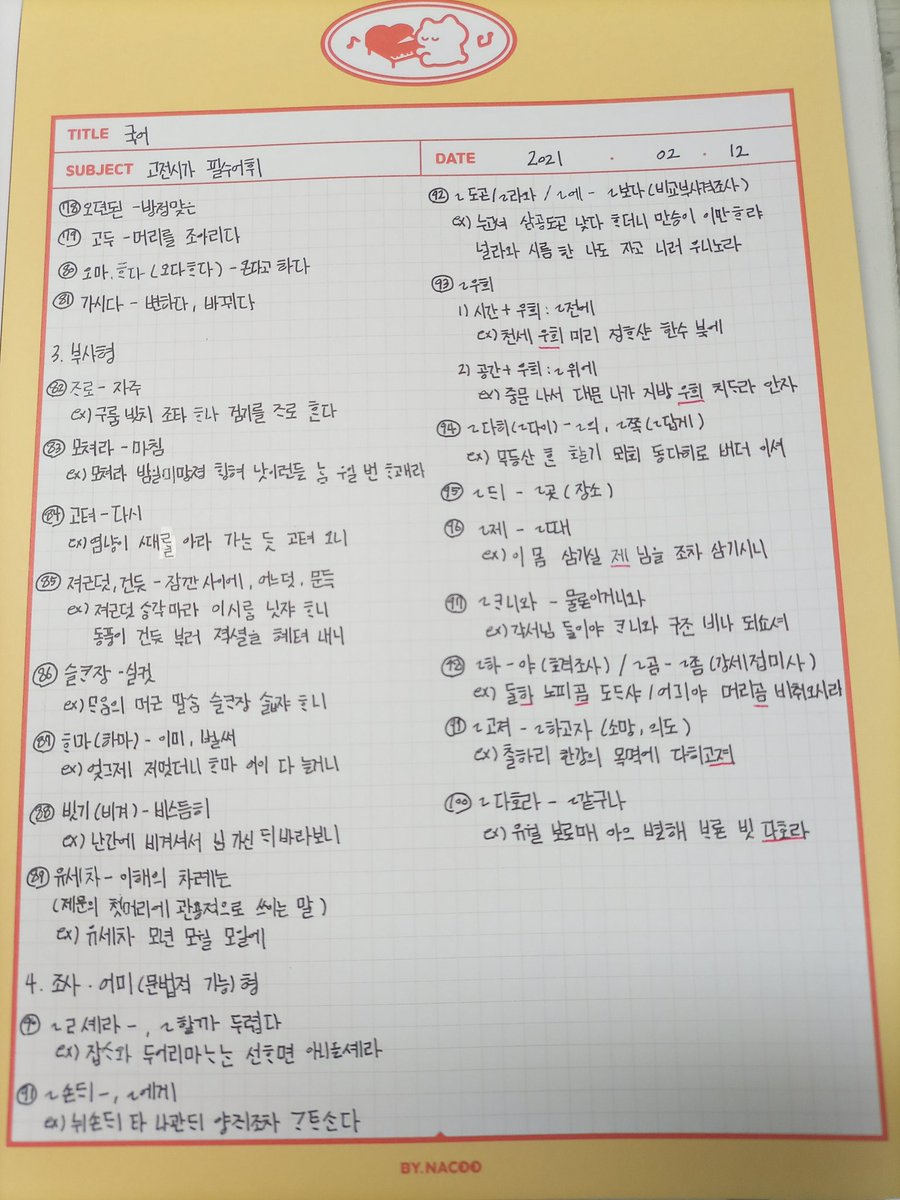 TITLE 국어
SUBJECT 고전시가 필수어휘
DATE 2021 . 02 . 12
78 오연된 - 방정맞은
79 고두 - 머리를 조아리다
80 오마.ᄒᆞ다 (오다ᄒᆞ다) - 온다고 하다
81 가시다 - 변하다, 바뀌다
3. 부사형
82 ᄌᆞ로 - 자주
ex) 구룸 빗치 조타 ᄒᆞ나 검기를 ᄌᆞ로 ᄒᆞ다
83 모쳐라 - 마침
ex) 모쳐라 밤일싀망졍 ᄒᆡᆼ혀 낫이런들 ᄂᆞᆷ 우일 번 ᄒᆞ괘라
84 고텨 - 다시
ex) 염냥이 ᄯᅢ를 아라 가는 ᄃᆞᆺ 고텨 오니
85 져근덧, 건듯 - 잠깐 사이에, 어느덧, 문득
ex) 져근덧 ᄉᆡᆼ각마라 이 시름 닛쟈 ᄒᆞ니
동풍이 건듯 부러 젹셜을 헤텨 내니
86 슬ᄏᆞ장 - 실컷
ex) ᄆᆞ음의 머근 말ᄉᆞᆷ 슬ᄏᆞ장 ᄉᆞᆲ쟈 ᄒᆞ니
87 ᄒᆞ마 (하마) - 이미, 벌써
ex) 엊그제 저멋더니 ᄒᆞ마 어이 다 늘거니
88 빗기 (비겨) - 비스듬히
ex) 난간에 비겨셔서 님 가신 ᄃᆡ 바라보니
89 유세차 - 이해의 차례는
(제문의 첫머리에 관용적으로 쓰이는 말)
ex) 유세차 모년 모월 모일에
4. 조사 · 어미 (문법적 기능) 형
90 ~ㄹ셰라 -, ~할까 두렵다
ex) 잡ᄉᆞ와 두어리마ᄂᆞᄂᆞᆫ 선ᄒᆞ면 아니올셰라
91 ~손ᄃᆡ -, ~에게
ex) 뉘손ᄃᆡ 타 나관ᄃᆡ 양ᄌᆡ조차 ᄀᆞᄐᆞᆫ손다
92 ~도곤 / ~라와 / ~에 - ~보다 (비교부사격조사)
ex) 누고셔 삼공도곤 낫다 ᄒᆞ더니 만승이 이만ᄒᆞ랴
널라와 시름 한 나도 자고 니러 우니노라
93 ~우희
1) 시간 + 우희 : ~전에
ex) 천세 우희 미리 정ᄒᆞ샨 한수 북에
2) 공간 + 우희 : ~위에
ex) 중문 나서 대문 나가 지방 우희 치ᄃᆞ라 안자
94 ~다히 (~다이) - ~의, ~쪽 (~답게)
ex) 무등산 ᄒᆞᆫ 활기 뫼희 동다히로 버더 이셔
95 ~ᄃᆡ - ~곳 (장소)
96 ~제 - ~때
ex) 이 몸 삼기실 제 님을 조차 삼기시니
97 ~ᄏᆞ니와 - 물론이거니와
ex) 각시님 ᄃᆞᆯ이야 ᄏᆞ니와 구ᄌᆞᆫ 비나 되쇼셔
98 ~하 - 야 (호격조사) / ~곰 - ~좀 (강세접미사)
ex) ᄃᆞᆯ하 노피곰 도ᄃᆞ샤 / 어긔야 머리곰 비취오시라
99 ~고져 - ~하고자 (소망, 의도)
ex) ᄎᆞᆯ하리 한강의 목멱에 다히고져
100 ~다호라 - ~같구나
ex) 유월 보로매 아으 별해 ᄇᆞ론 빗 다호라
BY. NACOO